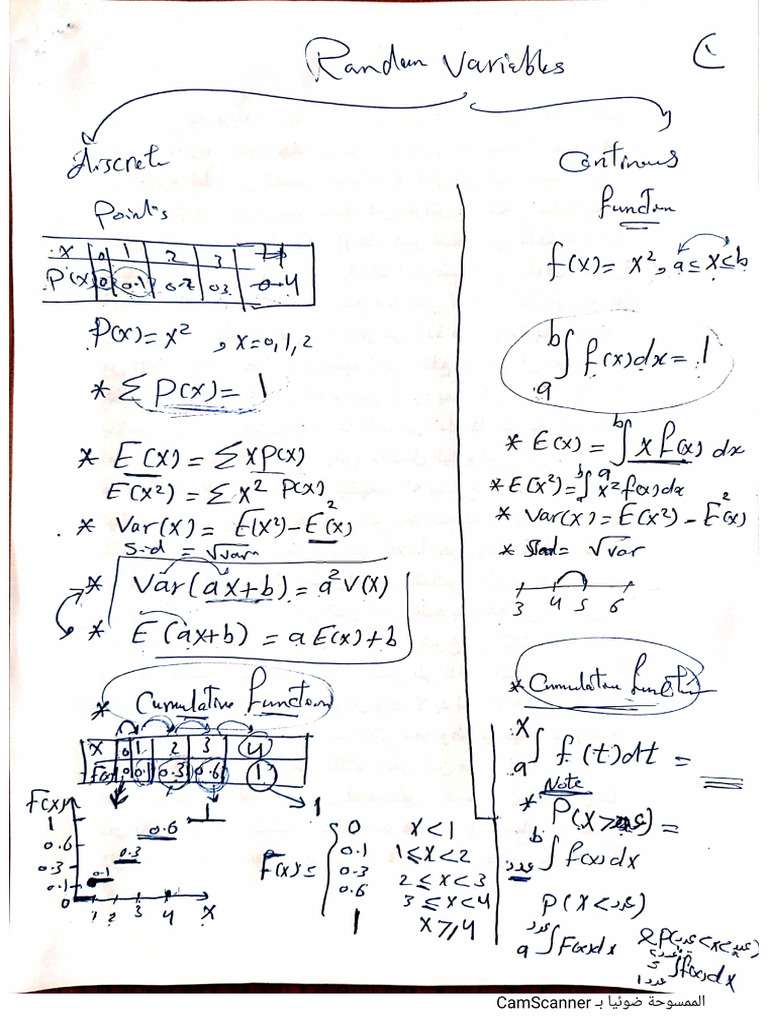 Random Variables
Discrete
Points
X 0 1 2 3 4
P(x) 0 0.1 0.2 0.3 0.4
P(x) = x² , x=0,1,2
* Σ P(x) = 1
* E(x) = Σ x P(x)
E(x²) = Σ x² P(x)
* Var(x) = E(x²) - E²(x)
s.d = √var
* Var(ax+b) = a² V(x)
* E(ax+b) = a E(x)+b
* Cumulative function
X 0 1 2 3 4
F(x) 0 0.1 0.3 0.6 1
F(x)
1
0.6
0.3
0.1
0
0.1
0.3
0.6
1
1 2 3 4 x
1
F(x) =
0 x<1
0.1 1≤x<2
0.3 2≤x<3
0.6 3≤x<4
1 x≥4
Continous
function
f(x) = x² , a≤x≤b
a∫b f(x)dx = 1
* E(x) = a∫b x f(x) dx
* E(x²) = a∫b x² f(x)dx
* Var(x) = E(x²) - E²(x)
= √var
3 4 5 6
* Cumulative function
a∫x f(t)dt =
Note
* P(x> ) =
عدد∫b f(x)dx
P(x<عدد)
a∫عدد F(x)dx
& P(عدد<x<عدد)
عدد1∫عدد2 f(x)dx
الممسوحة ضوئيا بـ CamScanner